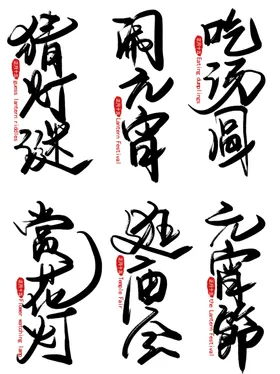 猜灯谜
guess lantern riddles
闹元宵
Lantern Festival
吃汤圆
Eating dumplings
赏花灯
Flower watching lamp
逛庙会
Temple Fair
元宵節
the Lantern Festival